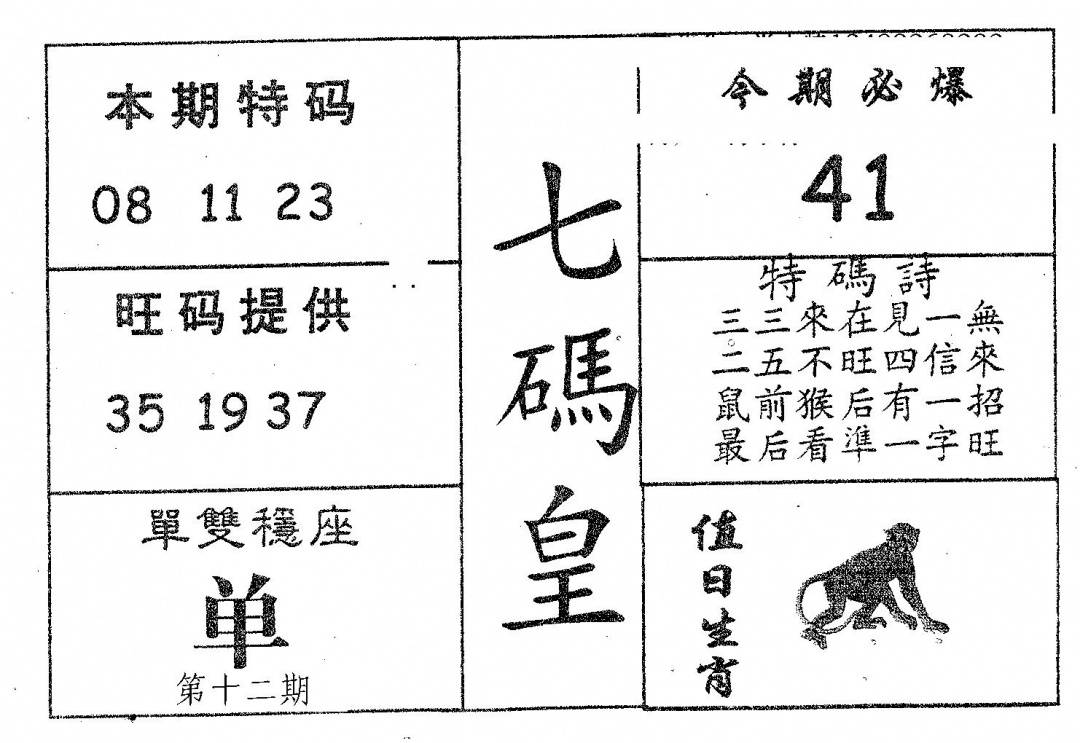 本期特码
08 11 23
旺码提供
35 19 37
單雙穩座
单
第十二期
七碼皇
今期必爆
41
特碼詩
三三來在見一無
二五不旺四信來
鼠前猴后有一招
最后看準一字旺
值日生肖